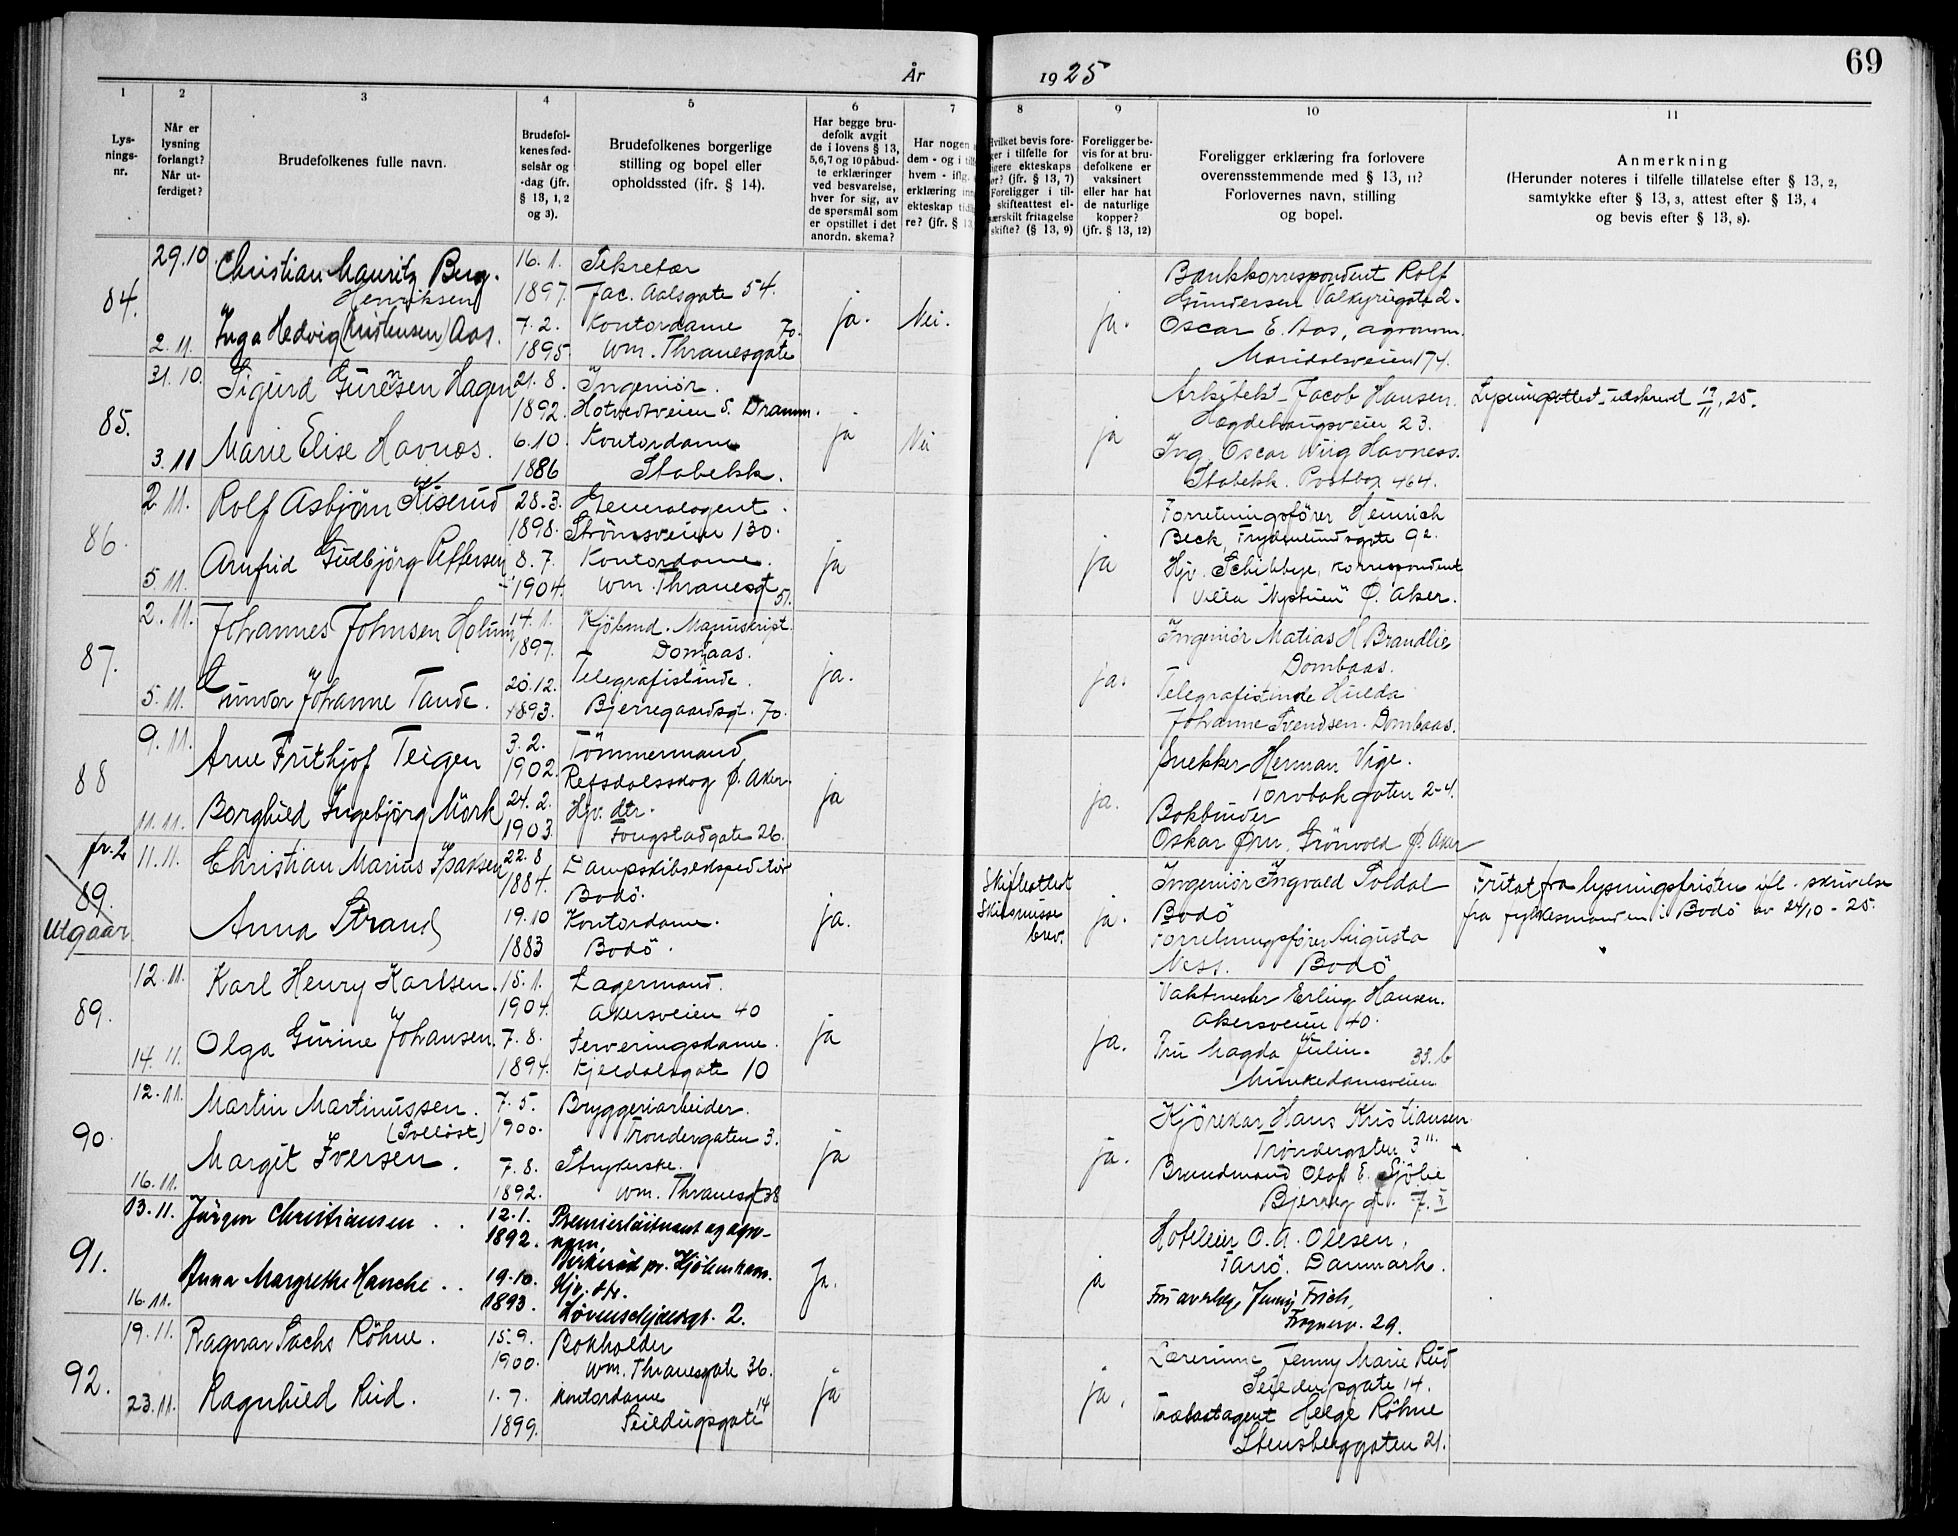 År 1925
69
1 2 3 4 5 6 7 8 9 10 11
Lys-
nings-
nr.
Når er
lysning
forlangt?
Når ut-
ferdiget?
Brudefolkenes fulle navn.
Brudefol-
kenes fød-
selsår og
-dag (jfr.
§ 13, 1, 2
og 3).
Brudefolkenes borgerlige
stilling og bopel eller
opholdssted (ifr. § 14).
Har begge bru-
defolk avgit
de i lovens § 13,
5,6,7 og 10 påbud-
te erklæringer
ved besvarelse,
hver for sig, av
de spørsmål som
er opstillet i det
anordn. skema?
Har nogen
dem - og i
hvem - iflg.
erklæring
ekteskap
re? (jfr. § 13,
Hvilket bevis fore-
ger i tilfelle for
ligere ekteskaps
er? (jfr. § 13, 7)
Foreligger i til-
skifteattest el-
særskilt fritagelse
skifte? (§ 13, 9)
Foreligger be-
vis for at bru-
defolkene er
vaksinert
eller har hat
de naturlige
kopper?
(jfr. § 13, 12)
Foreligger erklæring fra forlovere
overensstemmende med § 13, 11?
Forlovernes navn, stilling
og bopel.
Anmerkning
(Herunder noteres i tilfelle tillatelse efter § 13, 2,
samtykke efter § 13, 3, attest efter § 13, 4
og bevis efter § 13, 8).
84.
29.10. Christian Mauritz Berg. 16.1. Sekretær
Henriksen 1897. Jac. Aalsgate 54.
Inga Hedvig (Kristensen) Aas. 7.2. Kontordame 70.
2.11. 1895. Wm. Thranesgate
ja. Nei. ja.
Bankkorrespondent Rolf
Gundersen Valkyriegate 2.
Oscar E. Aas, agronom.
Maridalsveien 174.
85.
31.10. Sigurd Gurensen Hagen 21.8. Ingeniør.
1892. Hotvedtveien 5. Dramm.
3.11 Marie Elise Havnos. 6.10. Kontordame
1886 Stabekk.
ja Nei ja
Arkitekt Jacob Hansen.
Hegdehaugsveien 23.
Ing. Oscar Wiig Havness.
Stabekk. Postbox 464.
Lysningsattest utskrevet 17/11, 25.
86.
2.11. Rolf Asbjørn Kiserud 28.3. Generalagent.
1898. Strømsveien 130.
Arnfrid Gudbjørg Pettersen 8.7. Kontordame.
5.11. 1904. Wm. Thranesgt 51.
ja ja
Forretningsfører Heinrich
Beck, Frydenlundsgate 92.
Hjv. Schibbye, korrespondent
Villa Ø. Aker.
87.
2.11. Johannes Johnsen Holum 14.1.
1897. Dombaas.
Gunvor Johanne Tande. 20.12. Telegrafistinde.
5.11. 1893. Bjerregaardsgt. 70.
ja. ja.
Ingeniør Matias H Brandlie
Dombaas.
Telegrafistinde Hulda
Johanne Svendsen. Dombaas.
88
9.11. Arne Frithjof Teigen 3.2. Tømmermand
1902. Refsdalsskog Ø. Aker.
Borghild Ingebjørg Mørk 24.2. Hjv. dtr.
11.11. 1903. Fougstadgate 26.
ja ja.
Snekker Herman Vige.
Torvbakgaten 2-4.
Bokbinder
Oskar Ørn, Grønvold Ø. Aker
fr. 2
89.
Utgaar
11.11. Christian Marius Isaksen 22.8 Dampskibsekspeditør
1884. Bodø.
Anna Strand 19.10 Kontordame.
1883 Bodø.
ja.
Skifteattest
Skilsmisse
brev.
ja.
Ingeniør Ingvald Soldal
Bodø
Forretningsfører Augusta
Ness. Bodø
Fritat fra lysningsfristen ifl. skrivelse
fra fylkesmanden i Bodø av 24/10 - 25.
89.
12.11. Karl Henry Karlsen. 15.1. Lagermand.
1904. Akersveien 40
Olga Gurine Johansen. 7.8. Serveringsdame.
14.11. 1894. Kjeldalsgate 10
ja ja.
Vaktmester Erling Hansen.
Akersveien 40.
Fru Magda Julin. 35.b
Munkedamsveien
90.
12.11. Martin Martinussen. 7.5. Bryggeriarbeider.
(Sollöst) 1900. Trondergaten 3.
Margit Iversen. 7.8. Strykerske.
16.11. 1892. Wm. Thranesgt 38
ja ja.
Kjørekar Hans Kristiansen
Trondergaten 3 II.
Brandmand Olof E. Sjöbe
Bjerreg gt. 7. II
91.
13.11. Jürgen Christiansen .. 12.1. Premierløitnant og agro-
1892. nom.
Birkerød pr. Kjøbenhavn.
Anna Margrethe Hanche .. 19.10. Hjv. dtr.
16.11. 1893. Løvenskjoldsgt. 2.
Ja. ja
Hoteleier O. A. Olesen,
Fanø. Danmark.
Fru overlæge Jenny Frich,
Frognerv. 29.
92.
19.11. Ragnar Sachs Röhne. 15.9. Bokholder
1900. Wm. Thranesgate 36.
Ragnhild Rud. 1.7. Kontordame 14
23.11. 1899. Seildugsgate
ja ja.
Lærerinne Jenny Marie Rud
Seildugsgate 14.
Trælastagent Helge Röhne
Stensberggaten 21.